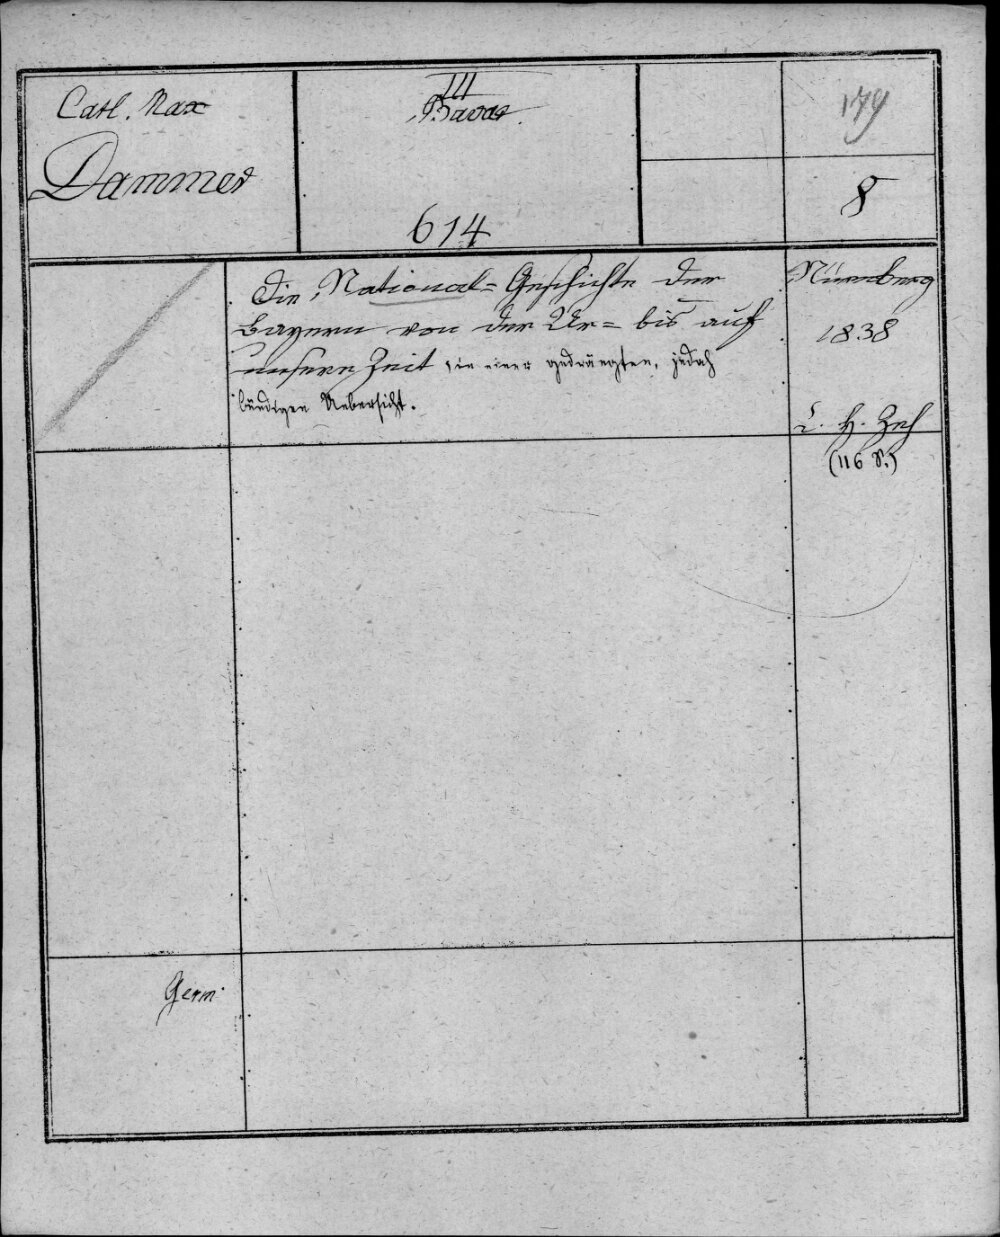 Carl. Max
Dammer
III
Bavar.
614
179
8
Die National-Geschichte der
Bayern von der Ur- bis auf
unsere Zeit, in einer gedrängten, jedoch
bündigen Uebersicht.
Nürnberg
1838
C. H. Zeh
(116 S.)
Germ.